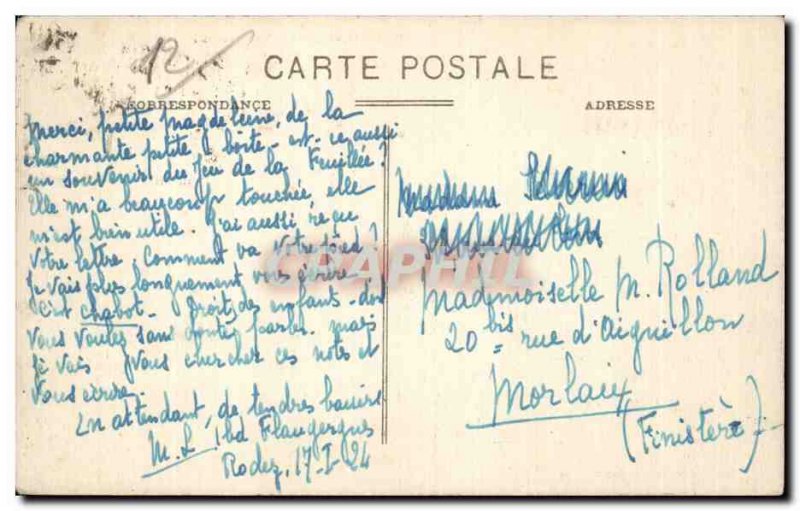 12
CARTE POSTALE
CORRESPONDANCE
ADRESSE
Merci, petite Magdeleine, de la
charmante petite boîte - est-ce aussi
un souvenir du Jeu de la Feuillée?
Elle m'a beaucoup touchée, elle
m'est bien utile. J'ai aussi reçu
votre lettre, Comment va votre pied?
Je vais plus longuement vous écrire
C'est Chabot - droits des enfants - dont
vous voulez sans doute parler. mais
je vais vous chercher ces notes et
vous écrire.
En attendant, de tendres baisers
M. L. 1 bd Flaugergues
Rodez, 17-I-24
Madame
Madmoiselle M. Rolland
20 bis rue d'Aiguillon
Morlaix
(Finistère)
CRAPHIL